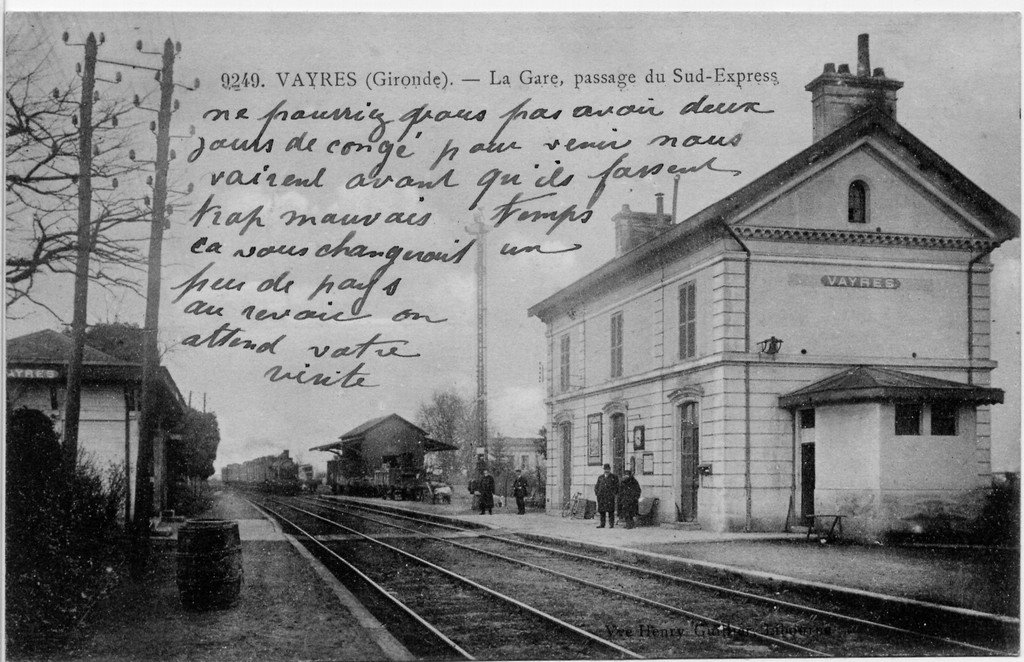 9249. VAYRES (Gironde). — La Gare, passage du Sud-Express
ne pourriez vous pas avoir deux
jours de congé pour venir nous
voir avant qu'ils fassent
trop mauvais temps
ça vous changerait un
peu de pays
au revoir on
attend votre
visite
VAYRES
AYRES
Vve Henry Guillier, Libourne